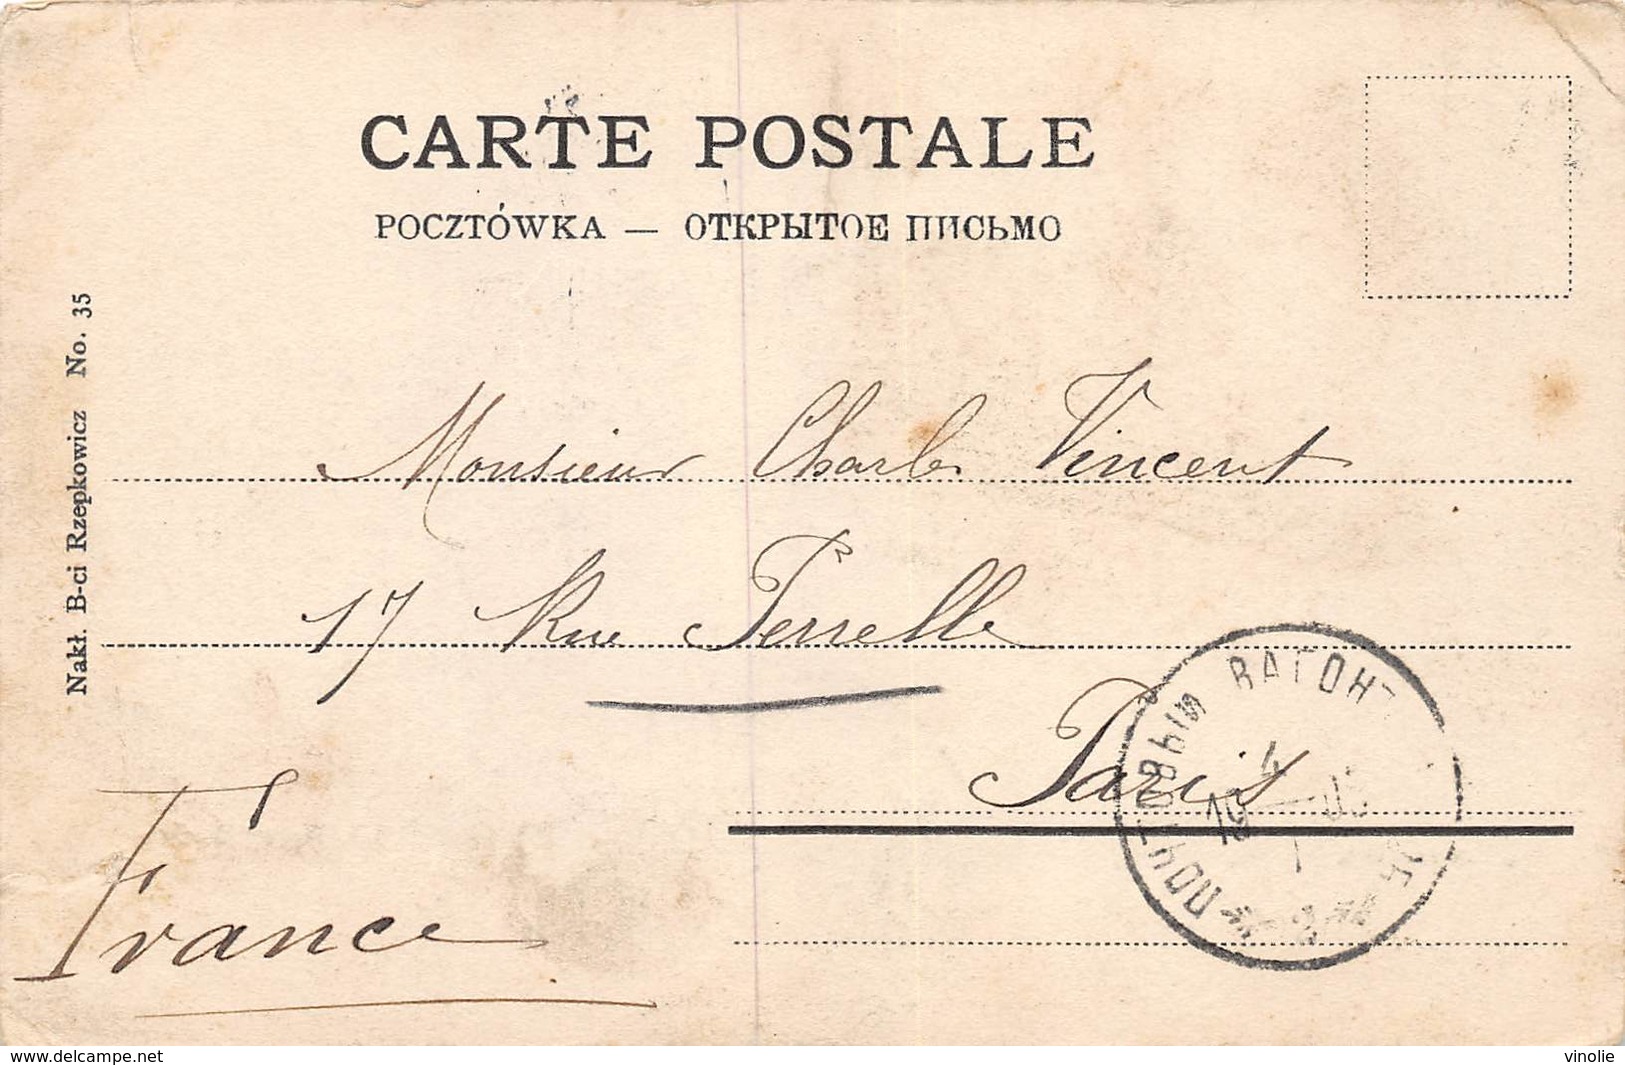 CARTE POSTALE
POCZTÓWKA — ОТКРЫТОЕ ПИСЬМО
Nakł. B-ci Rzepkowicz No. 35
Monsieur Charles Vincent
17 Rue Perrelle
Paris
France
ПОЧТОВЫЙ ВАГОНЪ
4
19
www.delcampe.net
vinolie